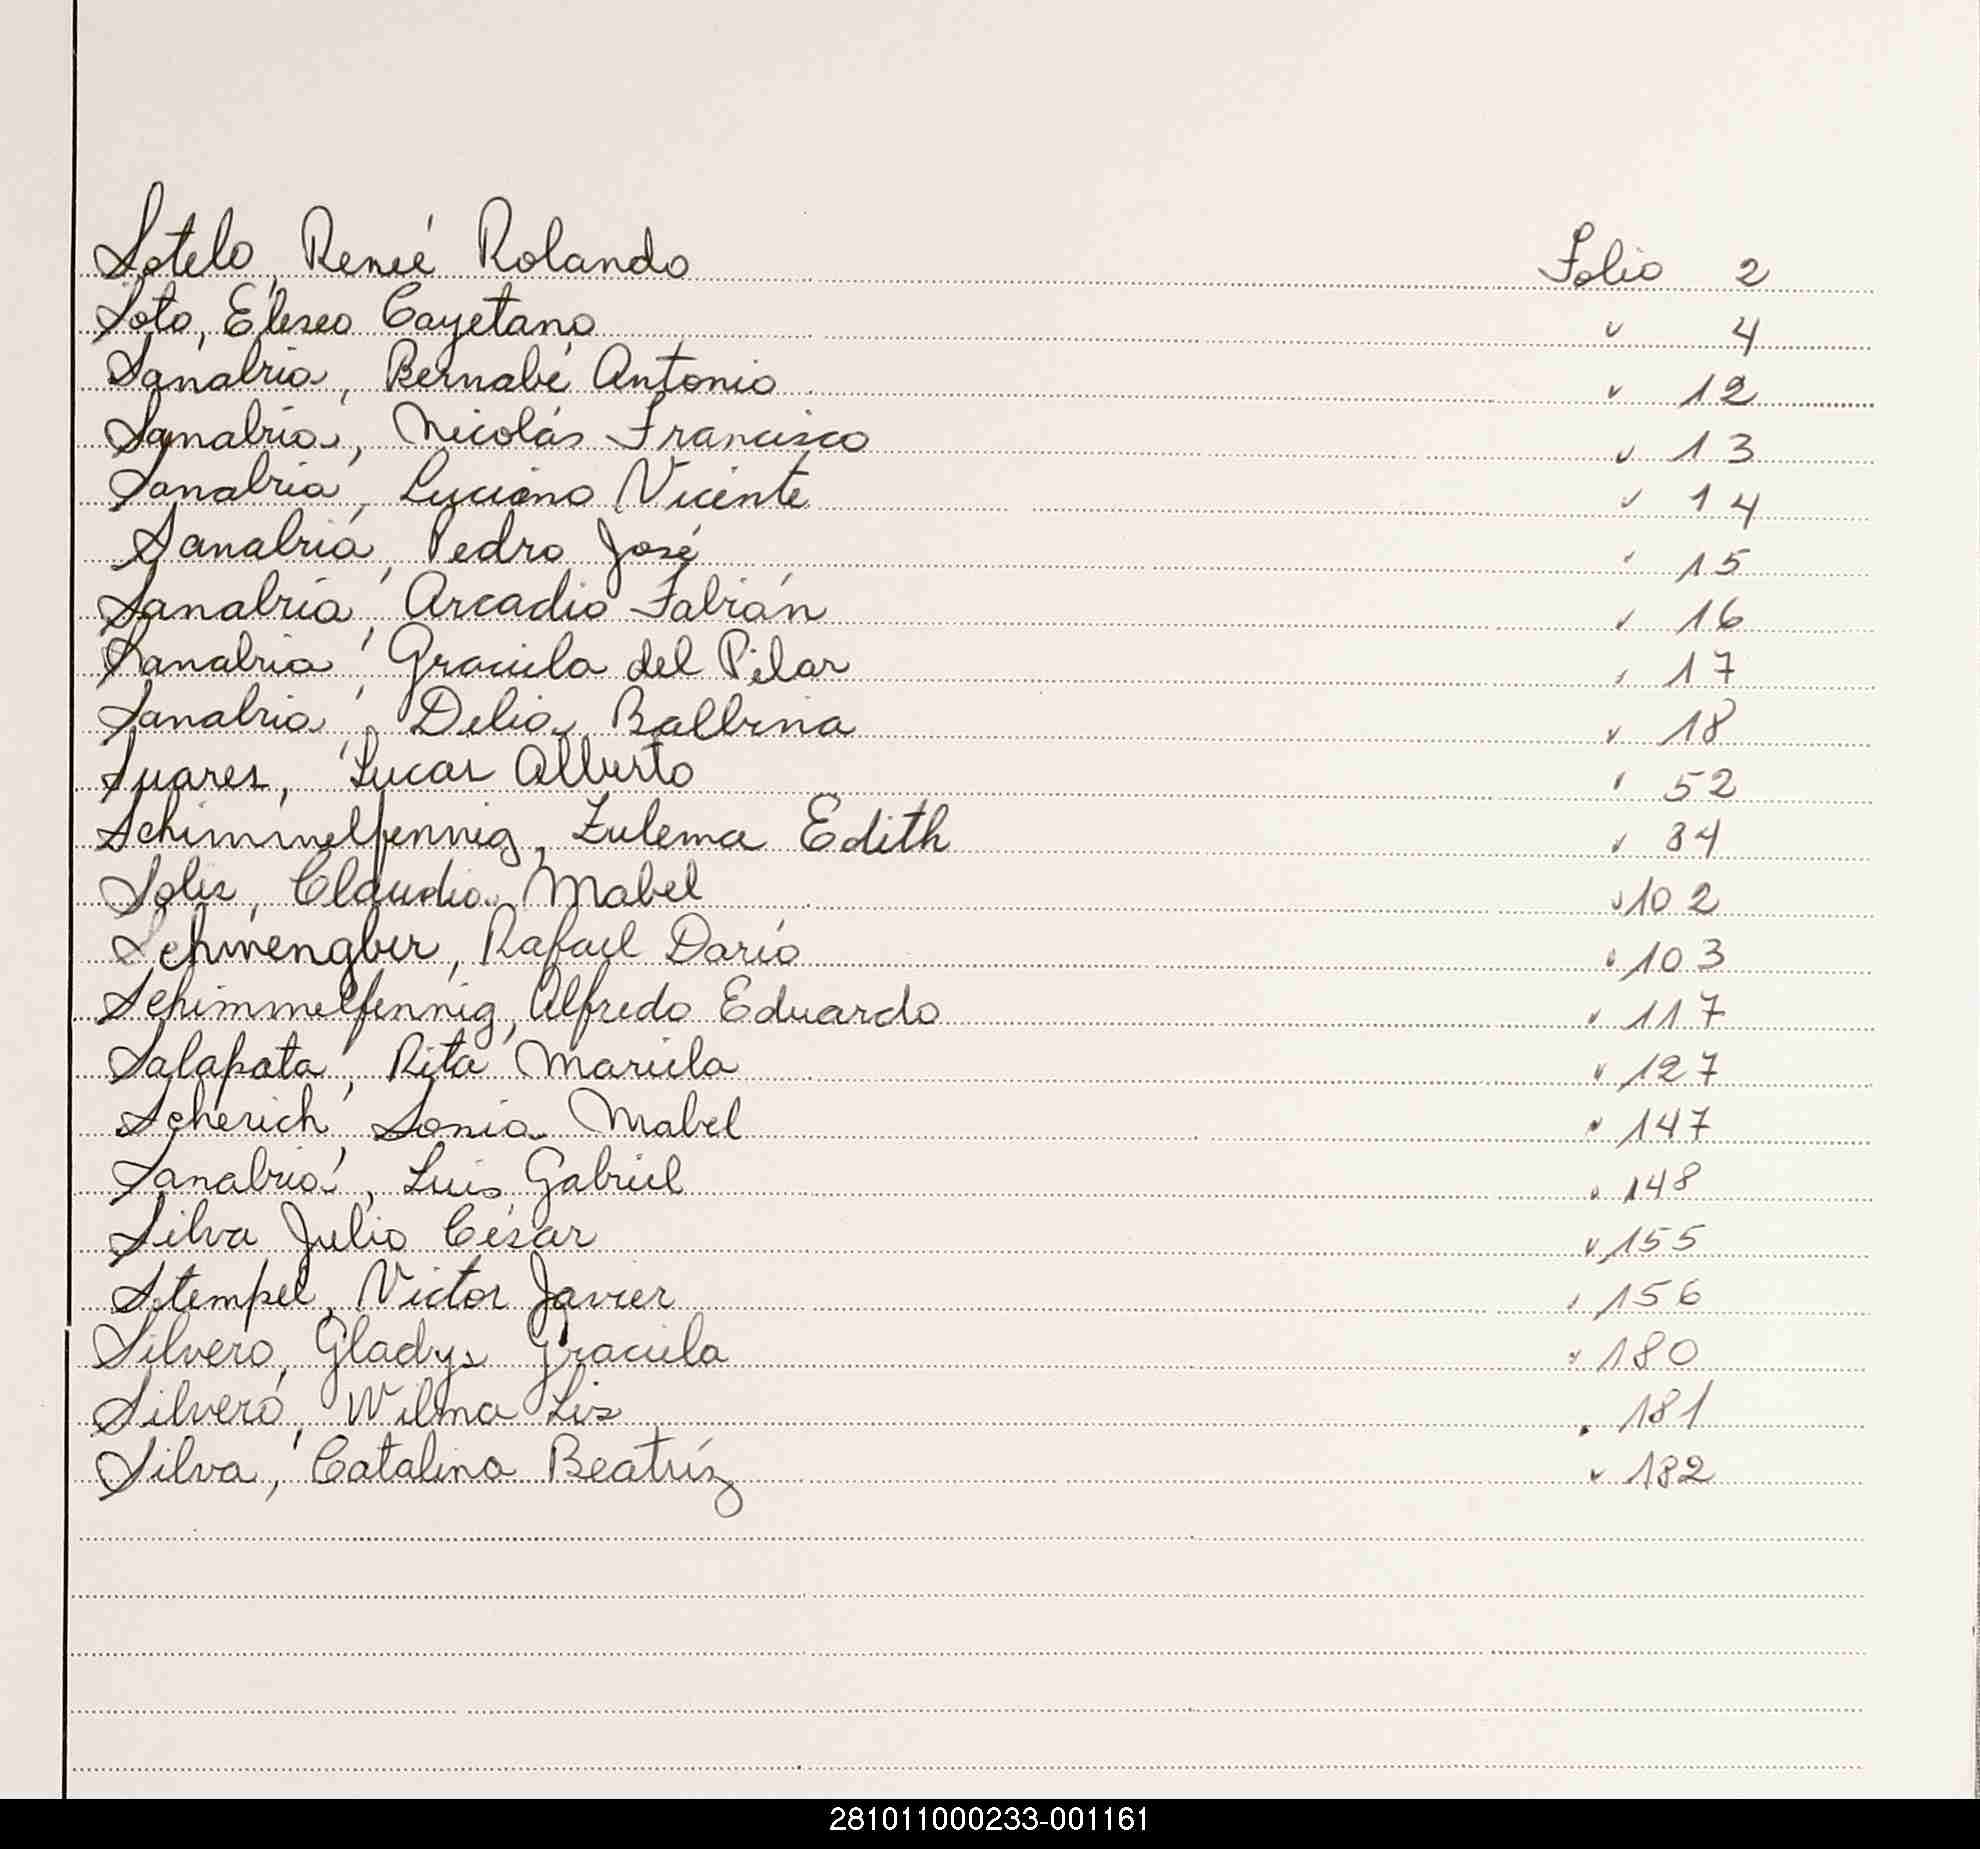 Sotelo, Reneé Rolando Folio 2
Soto, Eliseo Cayetano " 4
Sanabria, Bernabé Antonio " 12
Sanabria, Nicolás Francisco " 13
Sanabria, Luciano Vicente " 14
Sanabria, Pedro José " 15
Sanabria, Arcadio Fabián " 16
Sanabria, Graciela del Pilar " 17
Sanabria, Delia Balbina " 18
Suares, Lucas Alberto " 52
Schimmelfennig, Zulema Edith " 84
Solis, Claudia Mabel " 102
Schwengber, Rafael Darío " 103
Schimmelfennig, Alfredo Eduardo " 117
Salapata, Rita Mariela " 127
Scherich, Sonia Mabel " 147
Sanabria, Luis Gabriel " 148
Silva Julio César " 155
Stempel, Victor Javier " 156
Silvero, Gladys Graciela " 180
Silvero, Wilma Lis " 181
Silva, Catalina Beatríz " 182
281011000233-001161